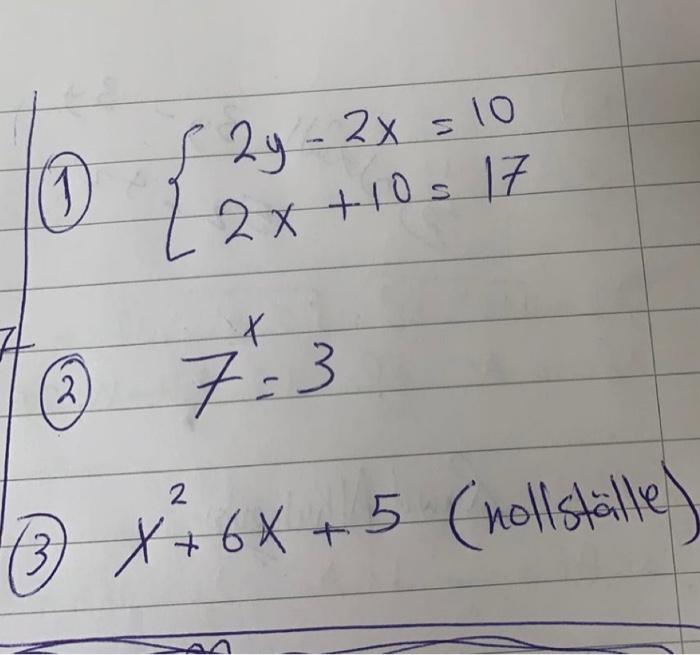 ① { 2y - 2x = 10
2x + 10 = 17
② 7ˣ = 3
③ x² + 6x + 5 (nollställe)